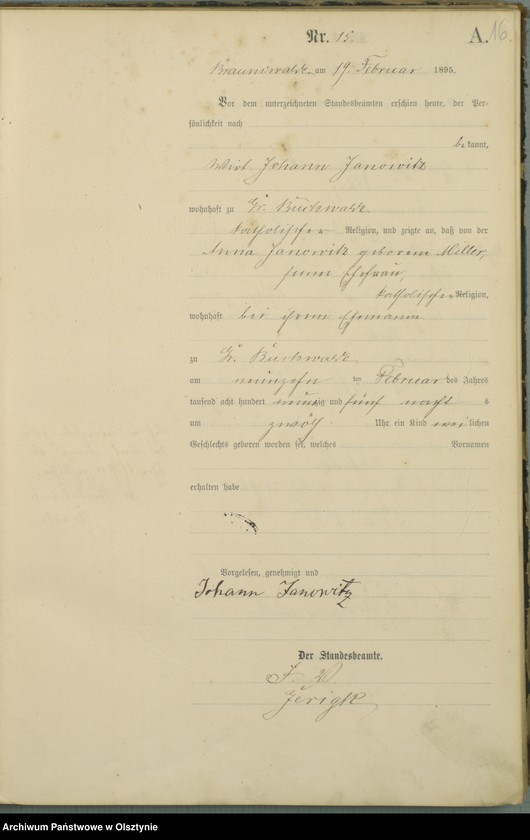 16.
Nr. 15. A.
Braunswalde am 19. Februar 1895.
Vor dem unterzeichneten Standesbeamten erschien heute, der Per-
sönlichkeit nach
bekannt,
Wirt Johann Janowitz
wohnhaft zu Gr. Buchwalde
katholischer Religion, und zeigte an, daß von der
Anna Janowitz geborenen Miller,
seiner Ehefrau,
katholischer Religion,
wohnhaft bei ihrem Ehemanne
zu Gr. Buchwalde
am neunzehn ten Februar des Jahres
tausend acht hundert neunzig und fünf nachts
um zwölf Uhr ein Kind weiblichen
Geschlechts geboren worden sei, welches Vornamen
erhalten habe
Vorgelesen, genehmigt und
Johann Janowitz
Der Standesbeamte.
J. V.
Jerigk
Archiwum Państwowe w Olsztynie